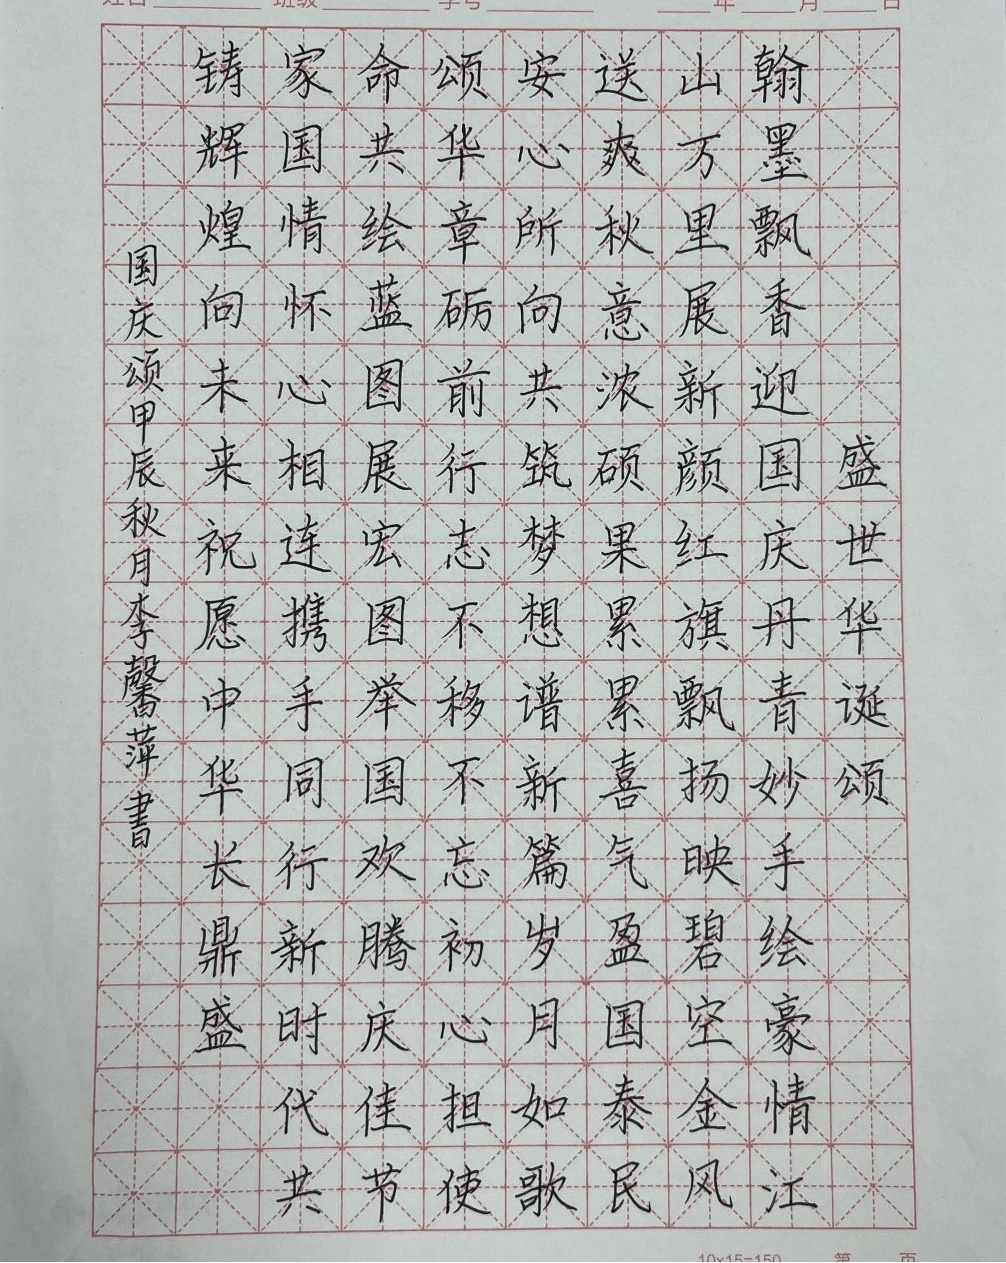 姓名 班级 学号 年 月 日
盛世华诞颂
翰墨飘香迎国庆丹青妙手绘豪情江
山万里展新颜红旗飘扬映碧空金风
送爽秋意浓硕果累累喜气盈国泰民
安心所向共筑梦想谱新篇岁月如歌
颂华章砺前行志不移不忘初心担使
命共绘蓝图展宏图举国欢腾庆佳节
家国情怀心相连携手同行新时代共
铸辉煌向未来祝愿中华长鼎盛
国庆颂甲辰秋月李馨萍書
10x15=150 第 页